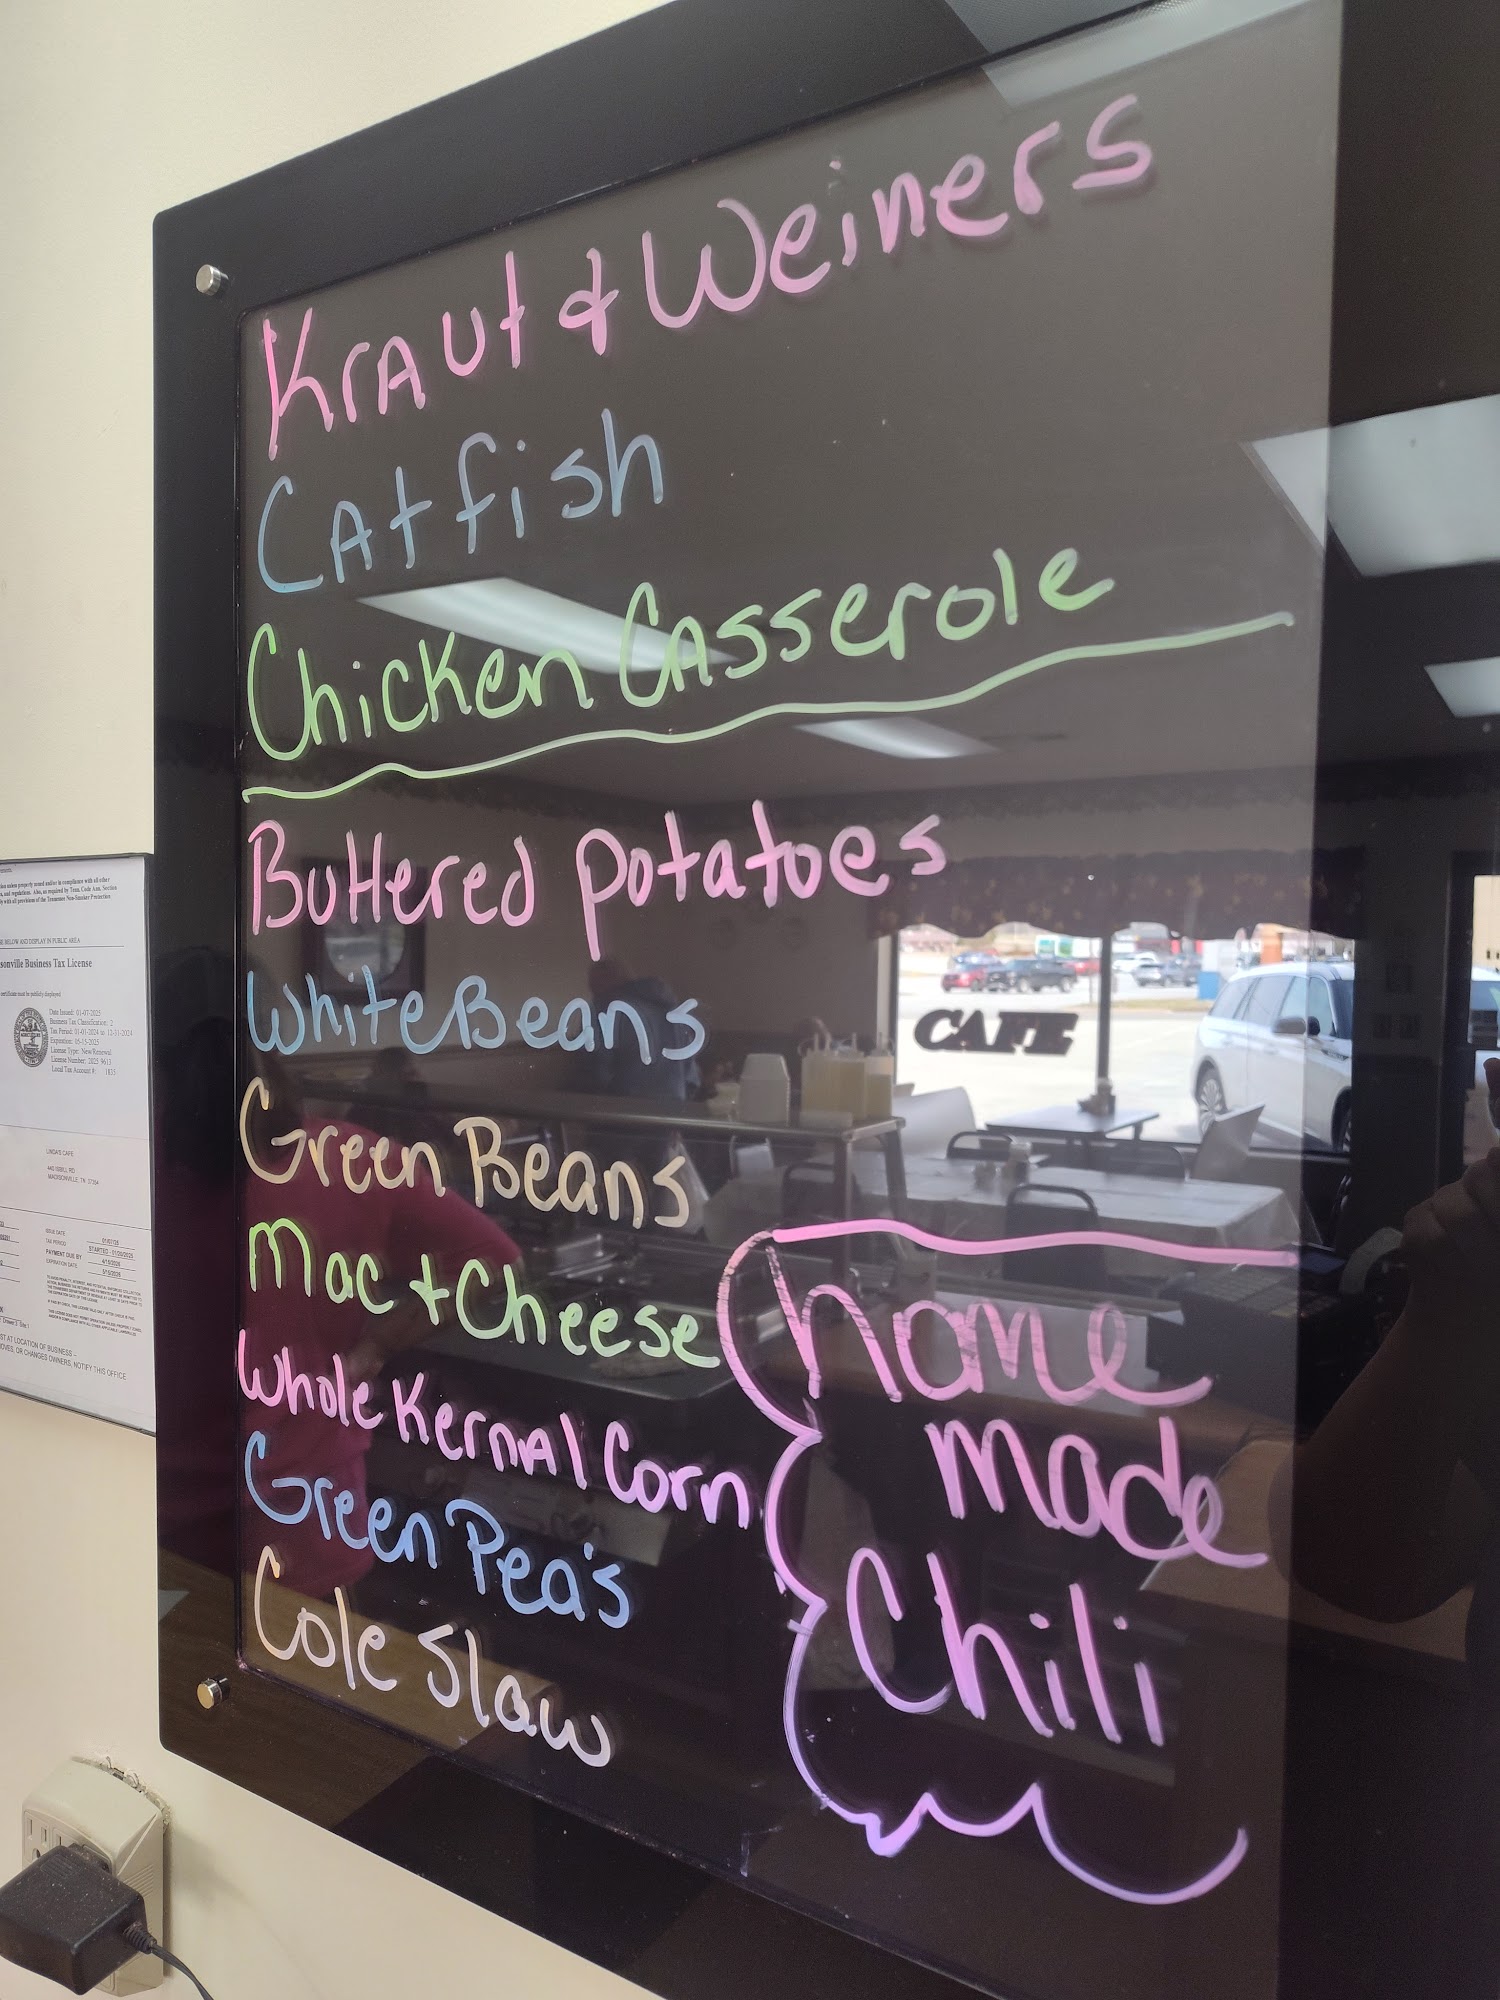 Kraut & Weiners
Catfish
Chicken Casserole
Buttered potatoes
White Beans
Green Beans
Mac + Cheese
Whole Kernal Corn
Green Pea's
Cole Slaw
home
made
Chili
CAFE
BELOW AND DISPLAY IN PUBLIC AREA
sonville Business Tax License
certificate must be publicly displayed
Date Issued: 01-07-2025
Business Tax Classification: 2
Tax Period: 01-01-2024 to 12-31-2024
Expiration: 05-15-2025
License Type: New/Renewal
License Number: 2025 9613
Local Tax Account #: 1835
LINDA'S CAFE
MADISONVILLE, TN 37354
ISSUE DATE
TAX PERIOD
PAYMENT DUE BY
EXPIRATION DATE
ST AT LOCATION OF BUSINESS –
OVES, OR CHANGES OWNERS, NOTIFY THIS OFFICE